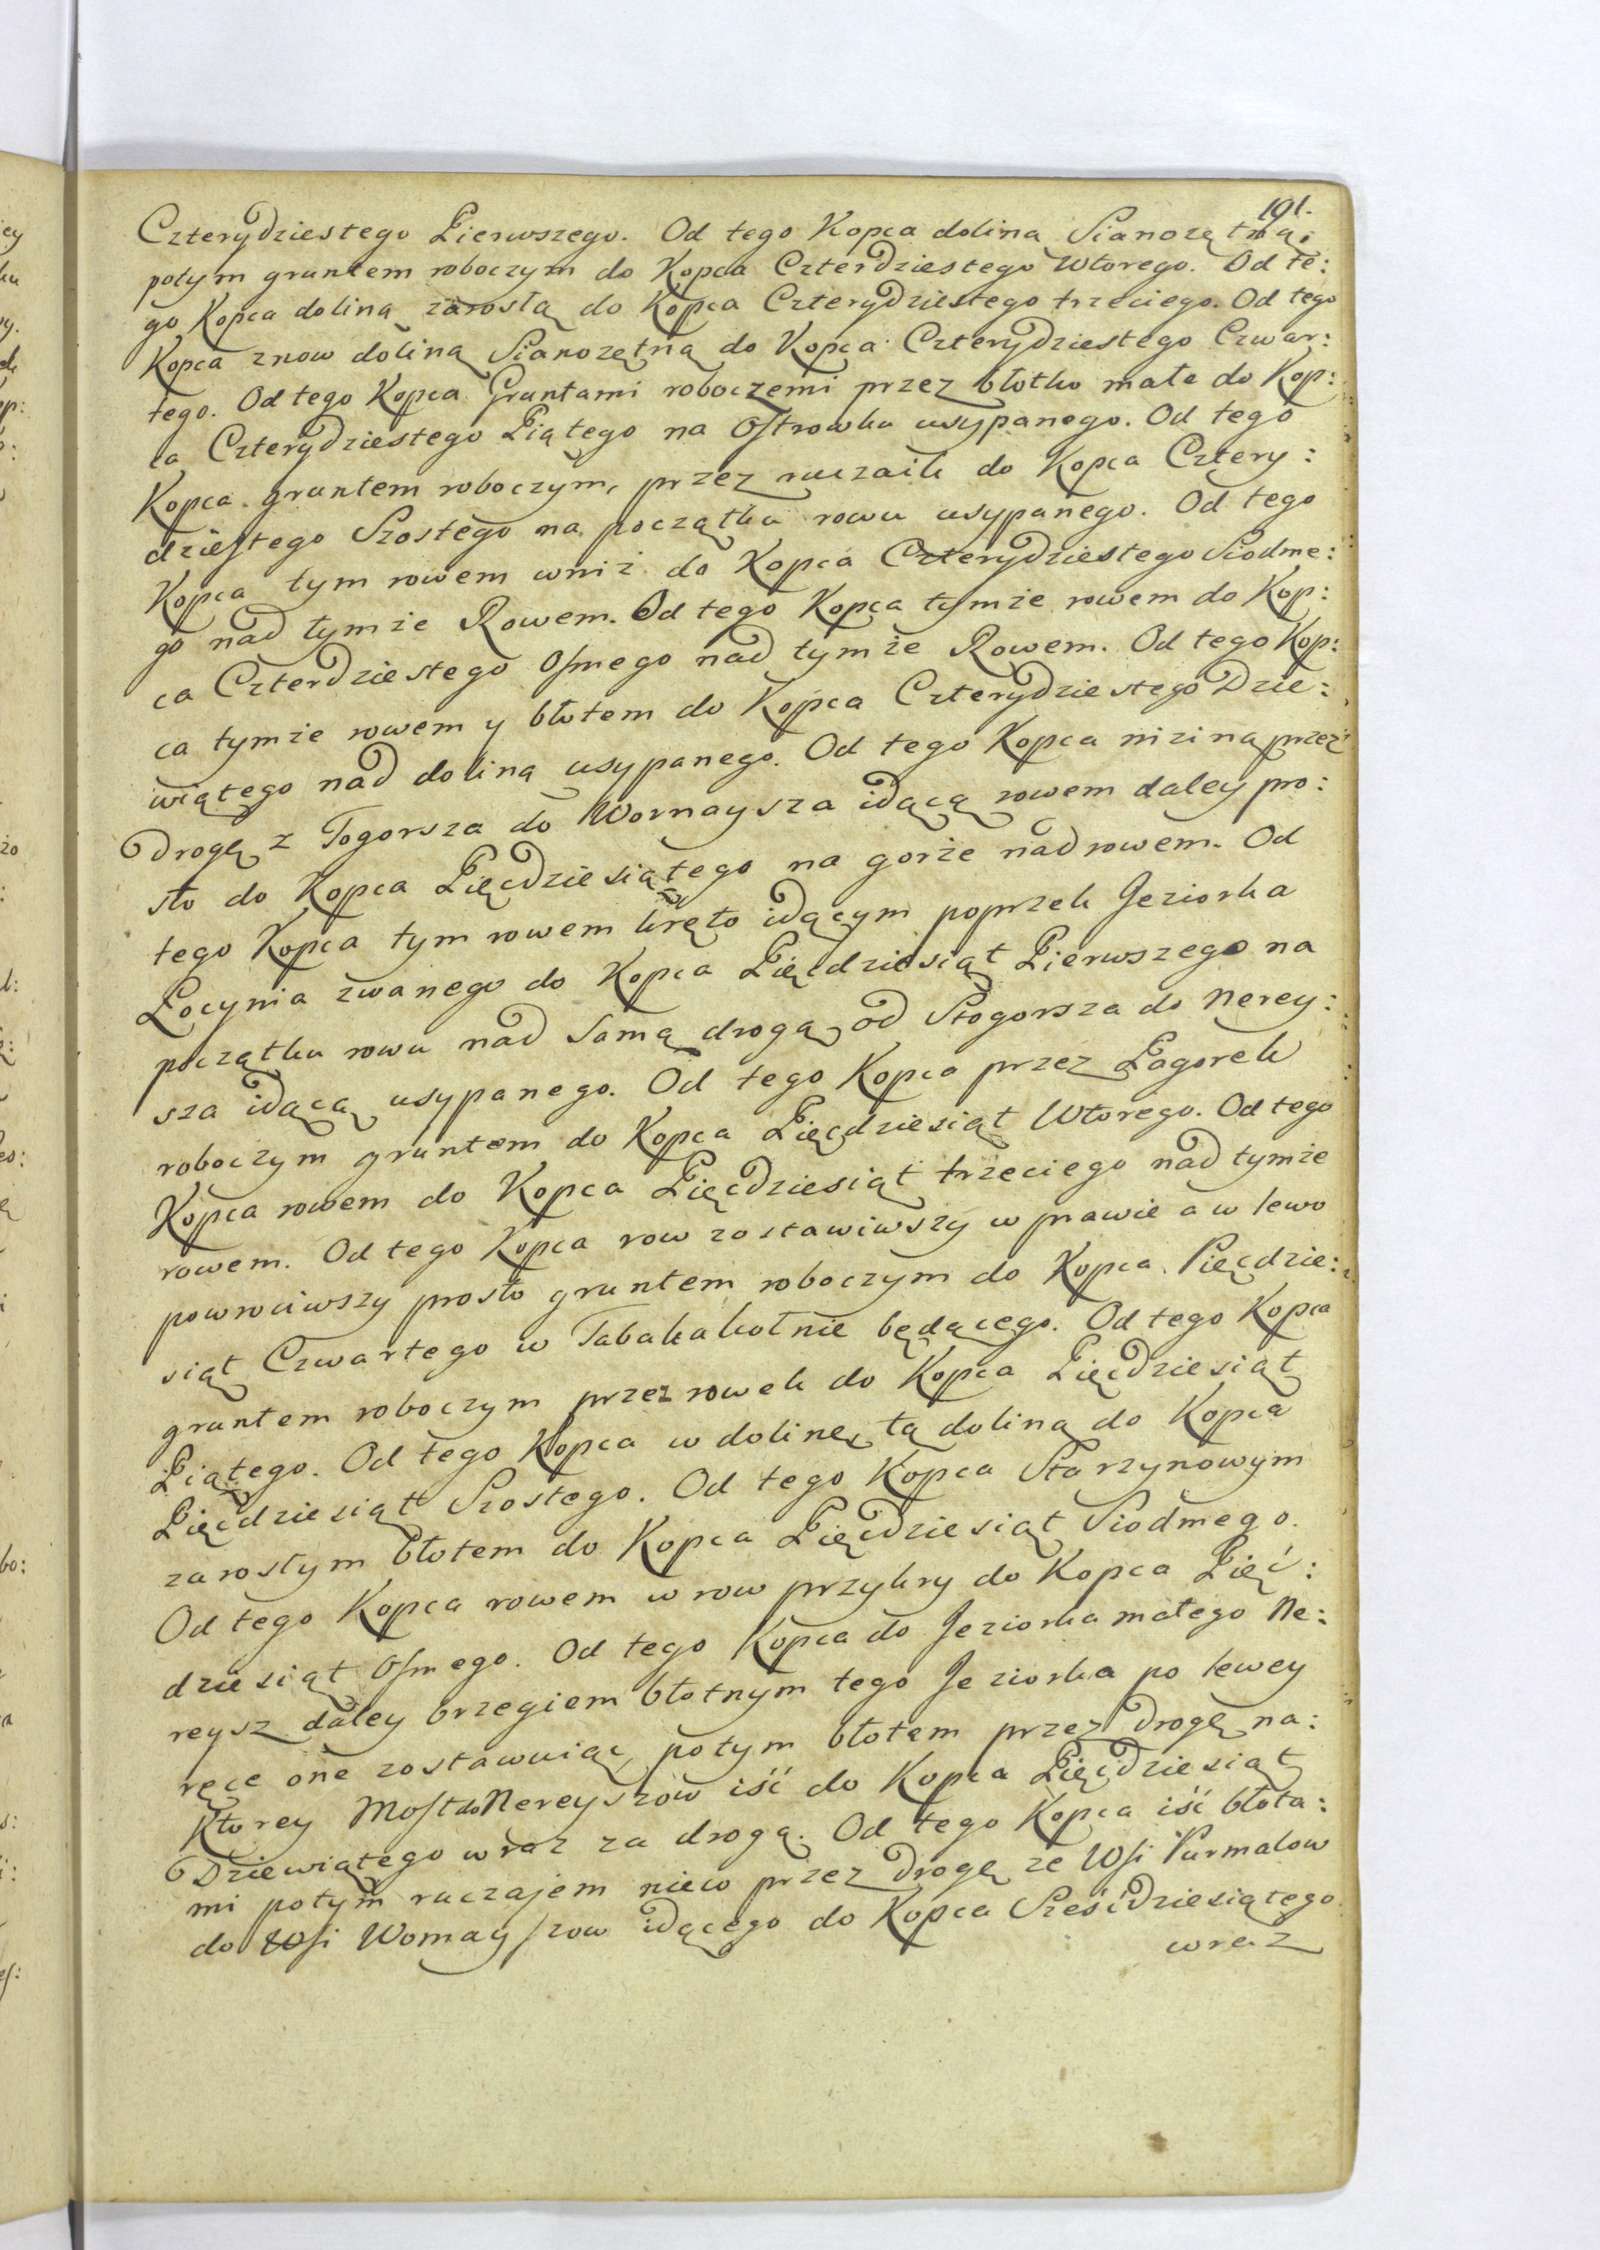 191.
Czterydziestego Pierwszego. Od tego Kopca doliną Sianozętną,
potym gruntem roboczym do Kopca Czterdziestego Wtorego. Od te:
go Kopca doliną zarosłą do Kopca Czterydziestego trzeciego. Od tego
Kopca znow doliną Sianozętną do Kopca Czterydziestego Czwar:
tego. Od tego Kopca Gruntami roboczemi przez błotko małe do Kop:
ca Czterydziestego Piątego na Ostrowku usypanego. Od tego
Kopca gruntem roboczym, przez ruczaik do Kopca Cztery:
dziestego Szostego na początku rowu usypanego. Od tego
Kopca tym rowem wniż do Kopca Czterydziestego Siodme:
go nad tymże Rowem. Od tego Kopca tymże rowem do Kop:
ca Czterdziestego Osmego nad tymże Rowem. Od tego Kop:
ca tymże rowem y błotem do Kopca Czterydziestego Dzie:
wiątego nad doliną usypanego. Od tego Kopca niziną przez
Drogę z Togorsza do Wornaysza idącą rowem daley pro:
sto do Kopca Pięcdziesiątego na gorze nad rowem. Od
tego Kopca tym rowem kręto idącym poprzek Jeziorka
Łocynia zwanego do Kopca Pięcdziesiąt Pierwszego na
początku rowu nad samą drogą od Stogorsza do Nerey:
sza idącą usypanego. Od tego Kopca przez Pagorek
roboczym gruntem do Kopca Pięcdziesiąt Wtorego. Od tego
Kopca rowem do Kopca Pięcdziesiąt trzeciego nad tymże
rowem. Od tego Kopca row zostawiwszy w prawie a w lewo
powrociwszy prosto gruntem roboczym do Kopca Pięcdzie:
siąt Czwartego w Tabakakołnie będącego. Od tego Kopca
gruntem roboczym przez rowek do Kopca Pięcdziesiąt
Piątego. Od tego Kopca w dolinę, tą doliną do Kopca
Pięcdziesiąt Szostego. Od tego Kopca Starzynowym
zarosłym błotem do Kopca Pięcdziesiąt Siodmego.
Od tego Kopca rowem w row przykry do Kopca Pięć:
dziesiąt Osmego. Od tego Kopca do Jeziorka małego Ne:
reysz daley brzegiem błotnym tego Jeziorka po lewey
ręce one zostawuiąc, potym błotem przez drogę na:
Ktorey Most do Nereyszow iść do Kopca Pięcdziesiąt
Dziewiątego wraz za drogą. Od tego Kopca iść błota:
mi potym ruczajem nieco przez drogę ze Wsi Purmalow
do Wsi Wornayszow idącego do Kopca Sześćdziesiątego
wraz